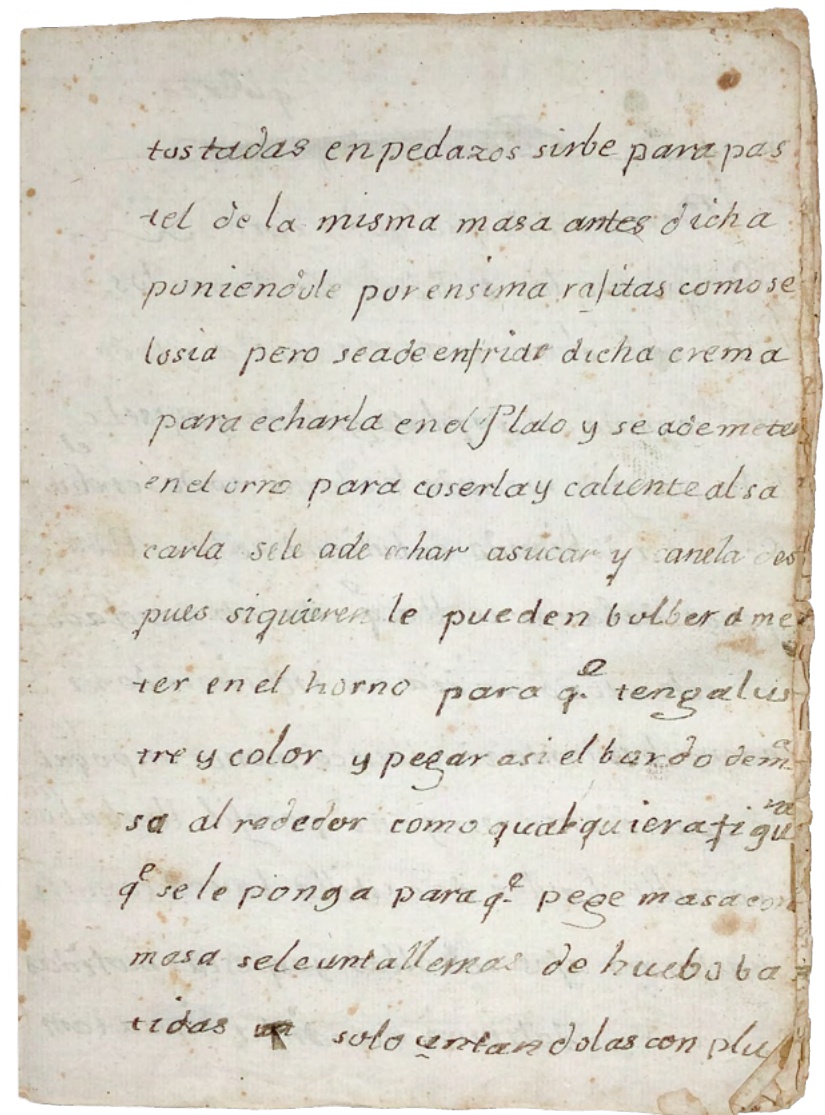 tostadas en pedazos sirbe para pas
tel de la misma masa antes dicha
poniendole por ensima rajitas como se
losia pero se a de enfriar dicha crema
para echarla en el Plato y se a de meter
en el orno para coserla y caliente al sa
carla se le a de echar asucar y canela des
pues si quieren le pueden bolber a me
ter en el horno para q.e tenga lus
tre y color y pegar asi el bordo de m.a
sa al rededor como qualquiera figura
q.e se le ponga para q.e pege masa con
masa se le unta llemas de huebo ba
tidas solo untandolas con plu